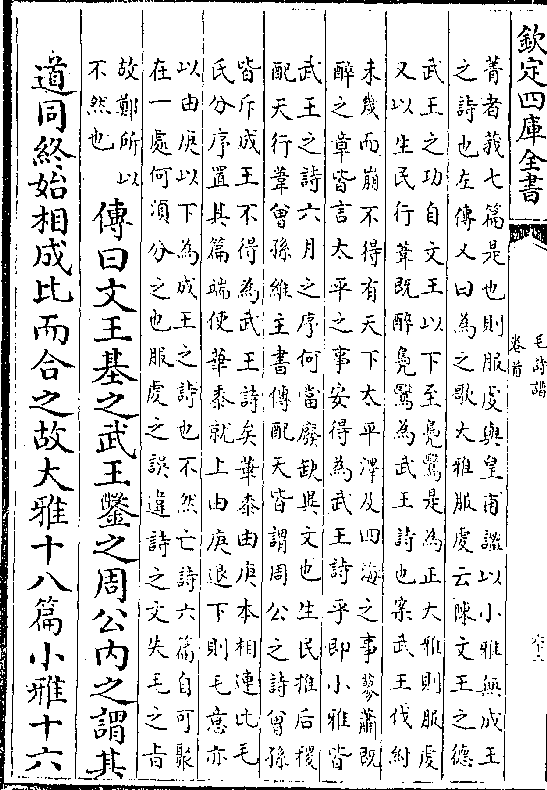 欽定四庫全書
毛詩譜
卷首
六十二
菁者莪七篇是也則服虔與皇甫謐以小雅無成王
之詩也左傳又曰為之歌大雅服虔云陳文王之德
武王之功自文王以下至鳧鷖是為正大雅則服虔
又以生民行葦既醉鳧鷖為武王詩也案武王伐紂
未幾而崩不得有天下太平澤及四海之事蓼蕭既
醉之章皆言太平之事安得為武王詩乎即小雅皆
武王之詩六月之序何當廢缺與文也生民推后稷
配天行葦曾孫維主書傳配天皆謂周公之詩曾孫
皆斥成王不得為武王詩矣華黍由庚本相連比毛
氏分序置其篇端使華黍就上由庚退下則毛意亦
以由庚以下為成王之詩也不然亡詩六篇自可聚
在一處何須分之也服虔之誤違詩之文失毛之旨
故鄭所以
不然也
傳曰文王基之武王鑿之周公內之謂其
道同終始相成比而合之故大雅十八篇小雅十六